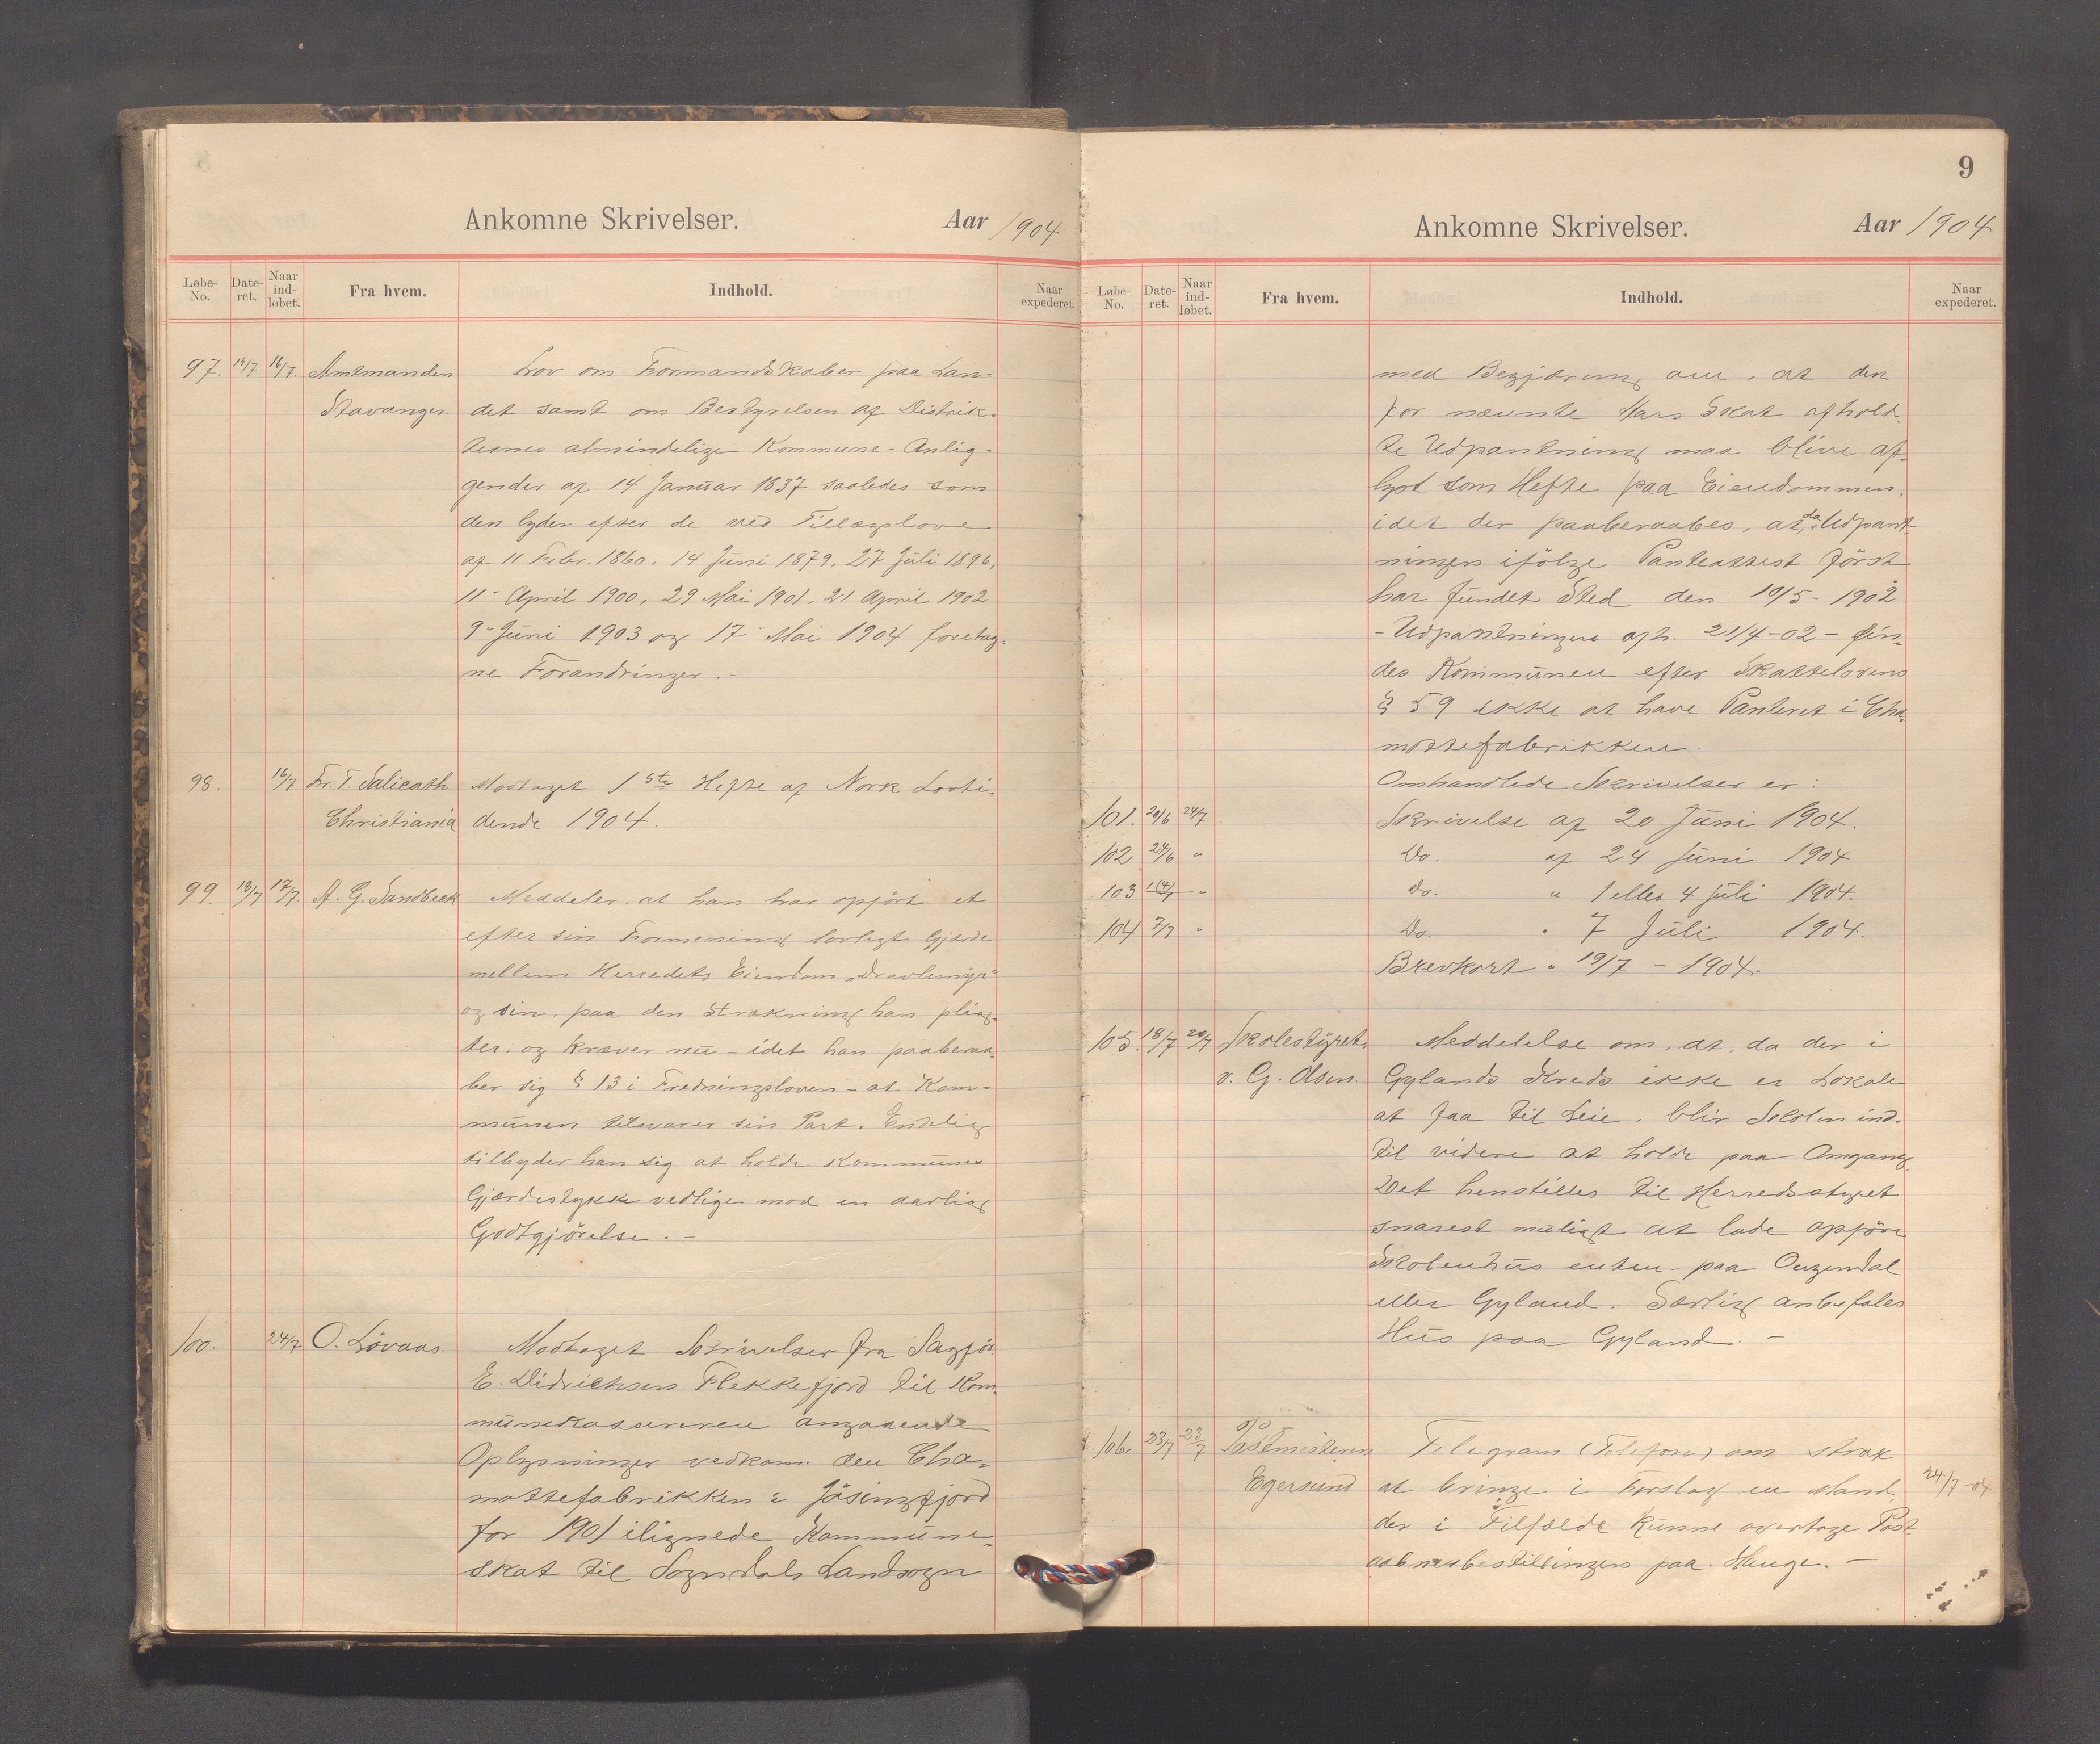 Ankomne Skrivelser. Aar 1904
Løbe-No. Date-ret. Naar ind-løbet. Fra hvem. Indhold. Naar expederet.
97. 15/7 16/7. Amtmanden Lov om Formandskaber paa Lan-
Stavanger. det samt om Bestyrelsen af Distrik-
ternes almindelige Kommune-Anlig-
gender af 14 Januar 1837 saaledes som
den lyder efter de ved Tillægslove
af 11 Febr. 1860. 14 Juni 1879. 27 Juli 1896,
11 April 1900, 29 Mai 1901. 21 April 1902
9 Juni 1903 og 17 Mai 1904 foretag-
ne Forandringer. -
98. 16/7 Fr. T. Salicath Modtaget 1ste Hefte af Norsk Lovti-
Christiania dende 1904.
99. 13/7 17/7 A. G. Sandbeck Meddeler at han har opført et
efter sin Formening lovligt Gjærde
mellem Herredets Eiendom "Dravlemyr"
og sin, paa den Strækning han plig-
ter, og kræver nu - idet han paaberaa-
ber sig § 13 i Fredningsloven - at Kom-
munen tilsvarer sin Part. Endelig
tilbyder han sig at holde Kommunens
Gjærdestykke vedlige mod en aarlig
Godtgjörelse. -
100. 24/7 O. Lövaas. Modtaget Skrivelser fra Sagför.
E. Didrichsen Flekkefjord til Kom-
munekassereren angaaende
Oplysninger vedkom. den Cha-
mottefabrikken i Jösingfjord
for 1901 ilignede Kommune-
skat til Sogndals Landsogn
9
Ankomne Skrivelser. Aar 1904.
Løbe-No. Date-ret. Naar ind-løbet. Fra hvem. Indhold. Naar expederet.
med Begjæring om, at den
for nævnte Aars Skat afhold-
te Udpantning maa blive af-
lyst som Hefte paa Eiendommen,
idet der paaberaabes, at, da Udpant-
ningen ifölge Panteattest först
har fundet Sted den 10/5 - 1902
- Udpantningen afh. 21/4 - 02 - fin-
des Kommunen efter Skattelovens
§ 59 ikke at have Panteret i Cha-
mottefabrikken.
Omhandlede Skrivelser er:
101. 20/6 24/7 Skrivelse af 20 Juni 1904.
102 24/6 " Do. af 24 Juni 1904
103 1(4)/7 " Do. " 1 eller 4 Juli 1904.
104 7/7 " Do. " 7 Juli 1904.
Brevkort " 19/7 - 1904.
105. 18/7 20/7 Skolestyret. Meddelelse om, at, da der i
v. G. Olsen. Gylands Kreds ikke er Lokale
at faa til Leie, blir Skolen ind-
til videre at holde paa Omgang
Det henstilles til Herredsstyret
snarest muligt at lade opföre
Skolenhus enten paa
eller Gyland. Særlig anbefales
Hus paa Gyland. -
106. 23/7 23/7 Postmesteren Telegram (Telefon) om strax
Egersund at bringe i Forslag en Mand, 24/7 - 04
der i Tilfælde kunne overtage Post-
aabneribestillingen paa Hauge. -